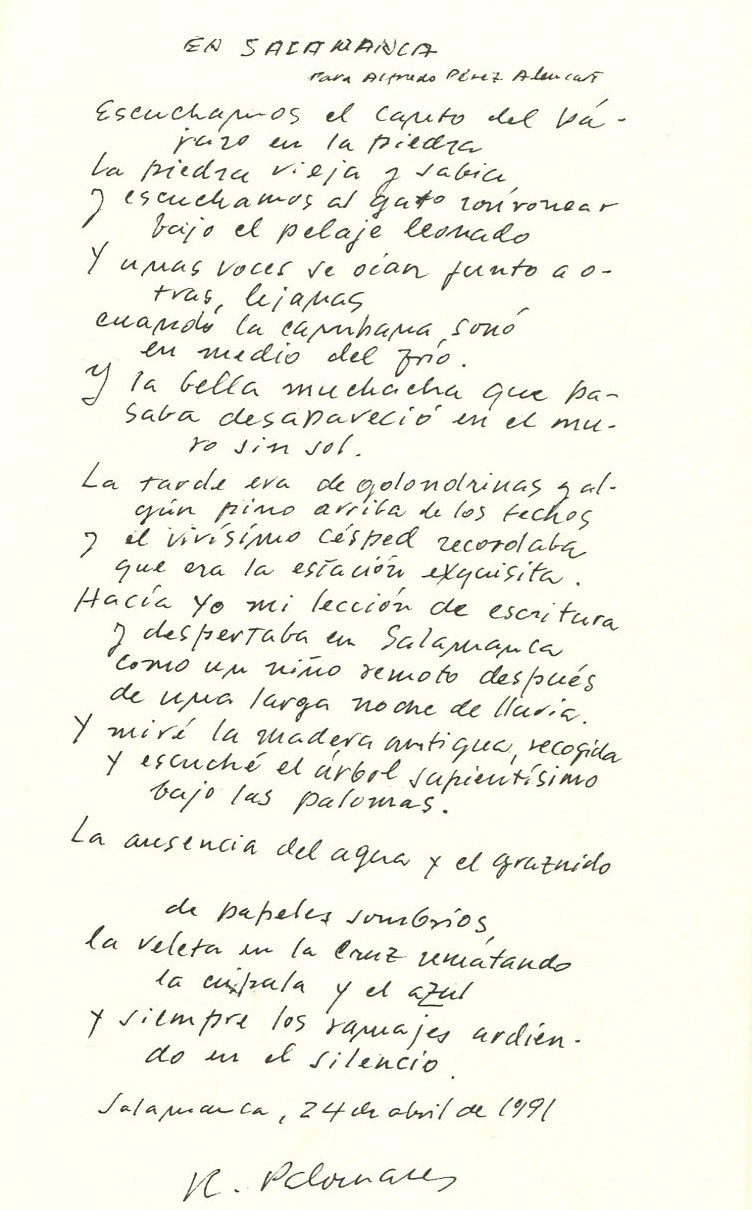 EN SALAMANCA
Para Alfredo Pérez Alencart
Escuchamos el canto del pá-
jaro en la piedra
la piedra vieja y sabia
y escuchamos al gato ronronear
bajo el pelaje leonado
Y unas voces se oían junto a o-
tras, lejanas
cuando la campana sonó
en medio del frío.
Y la bella muchacha que pa-
saba desapareció en el mu-
ro sin sol.
La tarde era de golondrinas y al-
gún pino arriba de los techos
y el vivísimo césped recordaba
que era la estación exquisita.
Hacía yo mi lección de escritura
y despertaba en Salamanca
como un niño remoto después
de una larga noche de lluvia.
Y miré la madera antigua, recogida
y escuché el árbol sapientísimo
bajo las palomas.
La ausencia del agua y el graznido
de papeles sombríos,
la veleta en la Cruz rematando
la cúpula y el azul
y siempre los ramajes ardien-
do en el silencio.
Salamanca, 24 de abril de 1991
R. Palomares